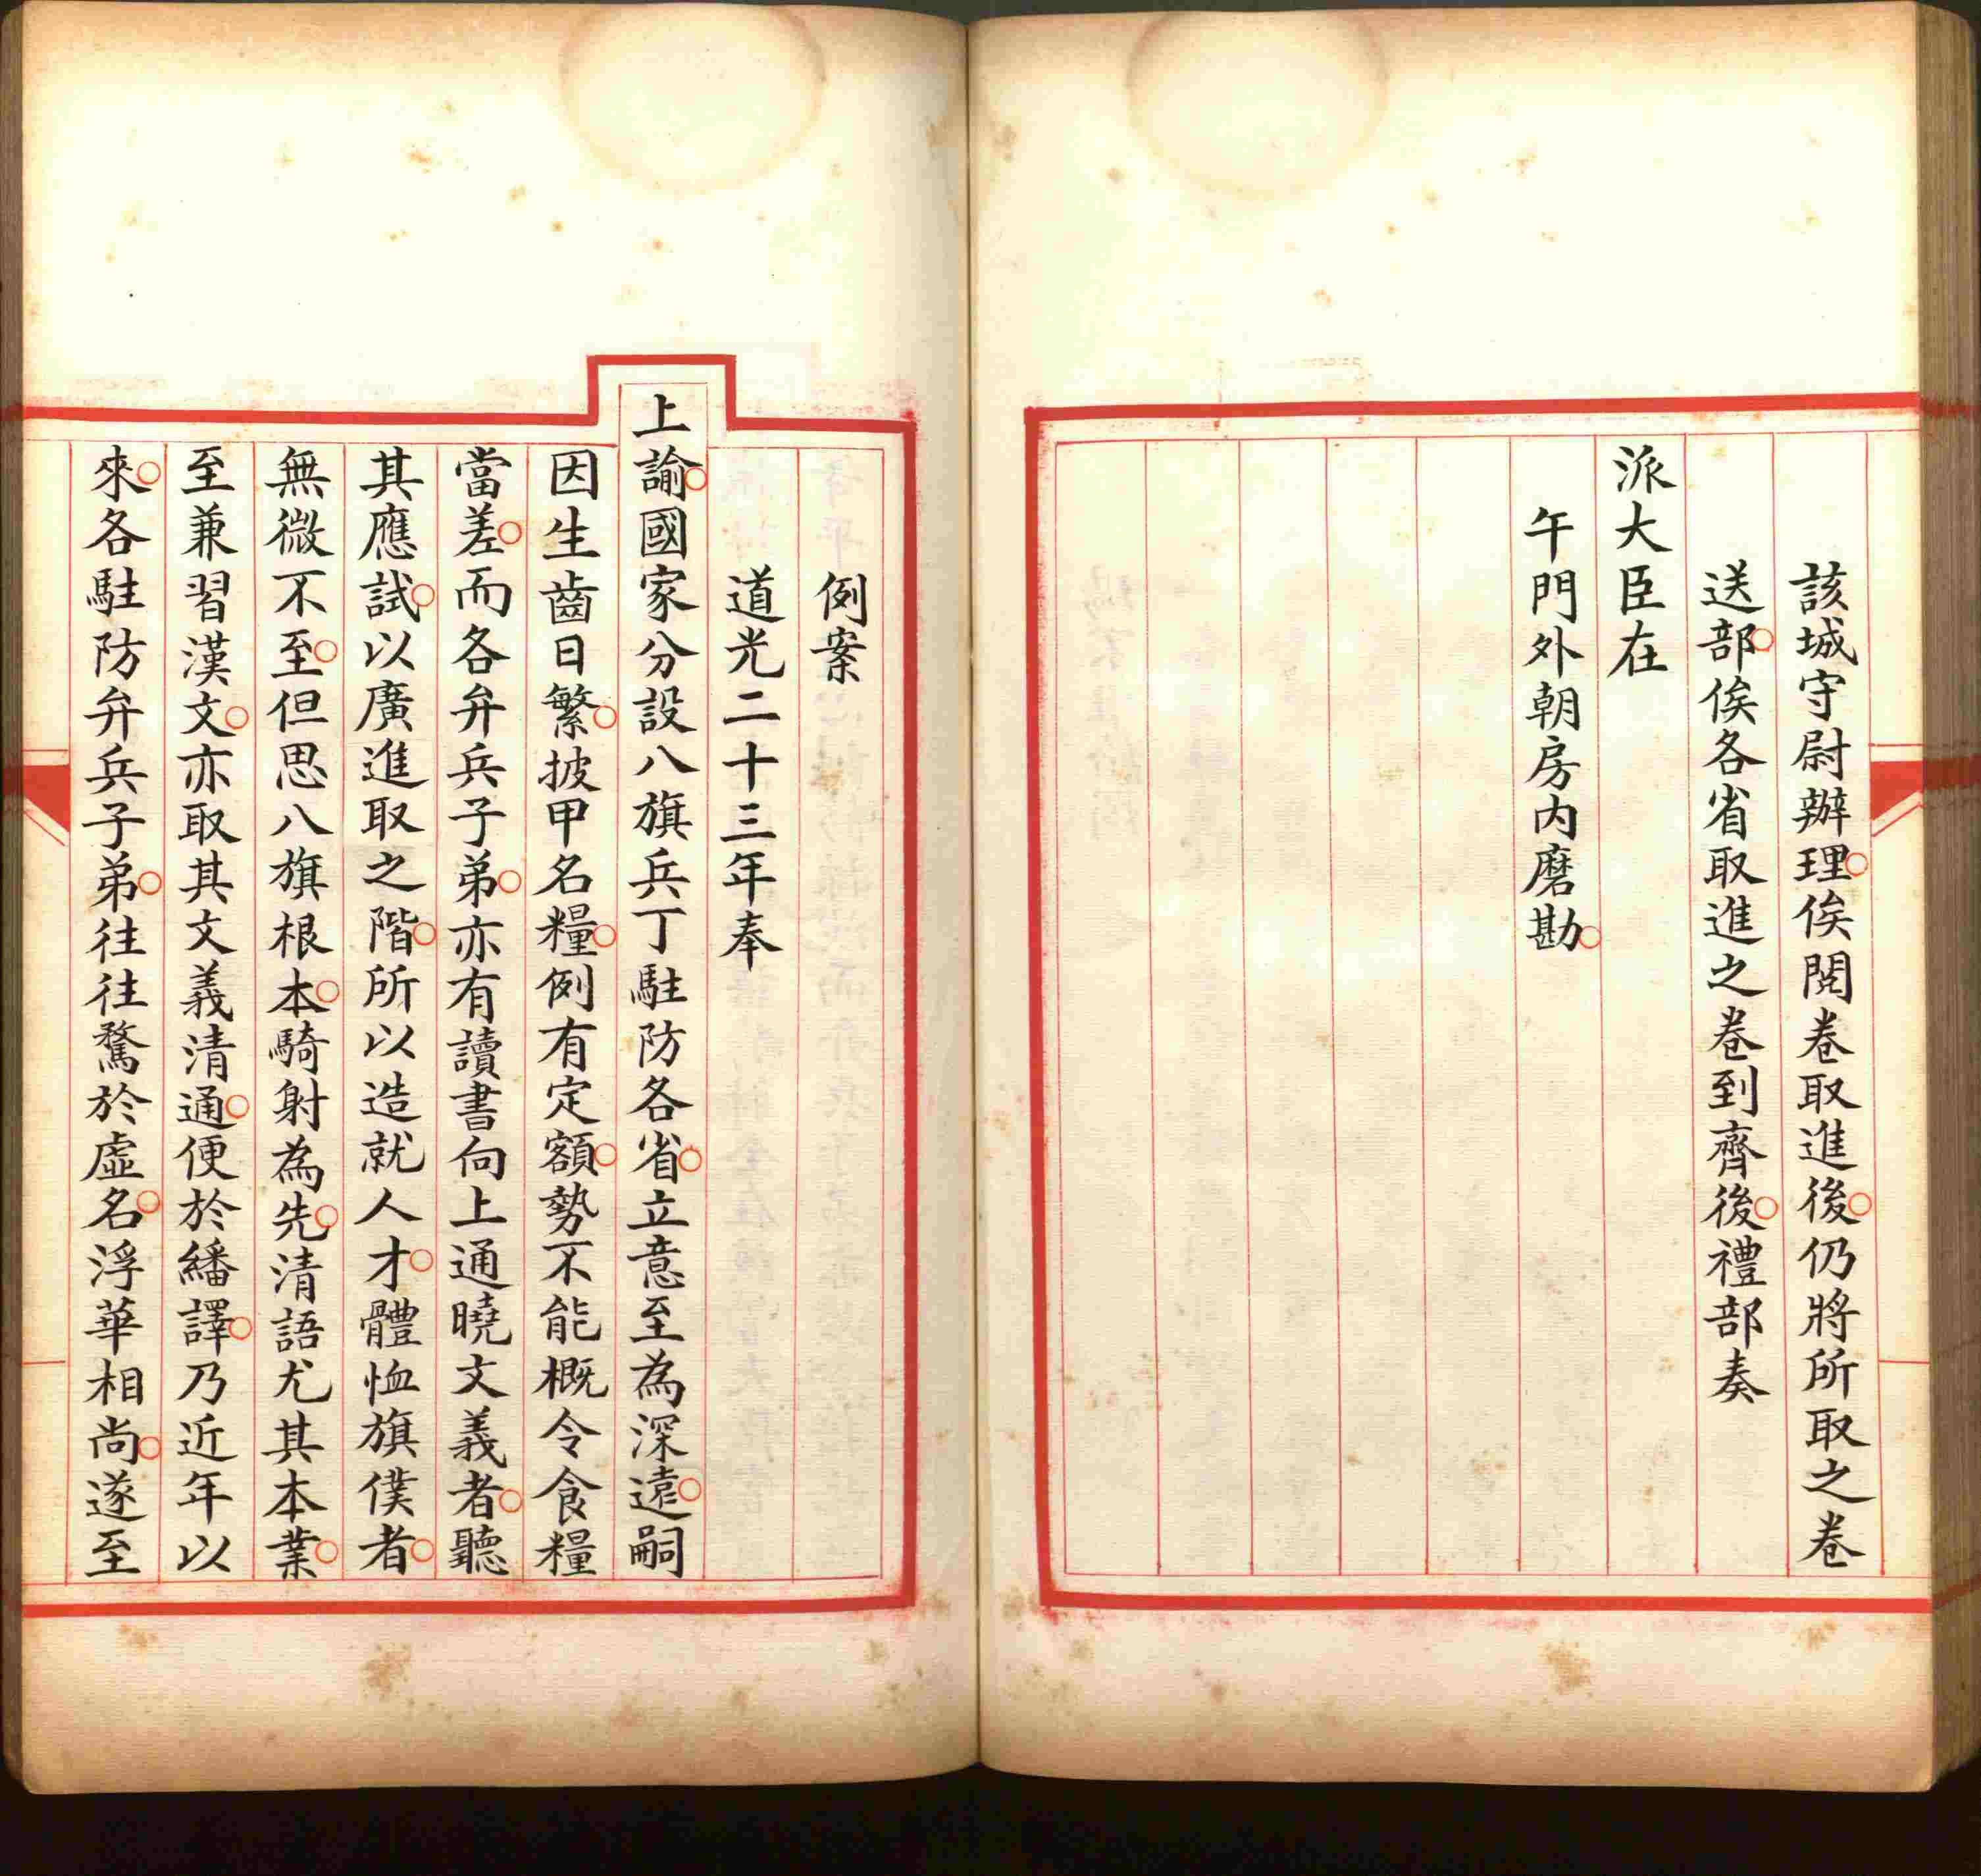 該城守尉辦理○俟閱卷取進後○仍將所取之卷
送部○俟各省取進之卷到齊後○禮部奏
派大臣在
午門外朝房内磨勘○
例案
道光二十三年奉
上諭○國家分設八旗兵丁駐防各省○立意至為深遠○嗣
因生齒日繁○披甲名糧○例有定額○勢不能概令食糧
當差○而各弁兵子弟○亦有讀書向上通曉文義者○聽
其應試○以廣進取之階○所以造就人才○體恤旗僕者○
無微不至○但思八旗根本○騎射為先○清語尤其本業○
至兼習漢文○亦取其文義清通○便於繙譯○乃近年以
來○各駐防弁兵子弟○往往騖於虛名○浮華相尚○遂至